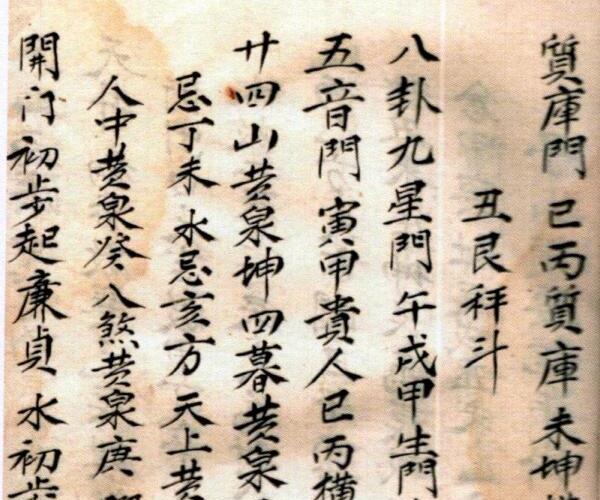 質庫門 巳丙質庫 未坤
丑艮秤斗
八卦九星門 午戌甲生門
五音門 寅甲貴人巳丙横
廿四山黄泉坤四暮黄泉
忌丁未 水忌亥方 天上黄
人中黄泉癸八煞黄泉庚
開门初步起廉貞 水初步